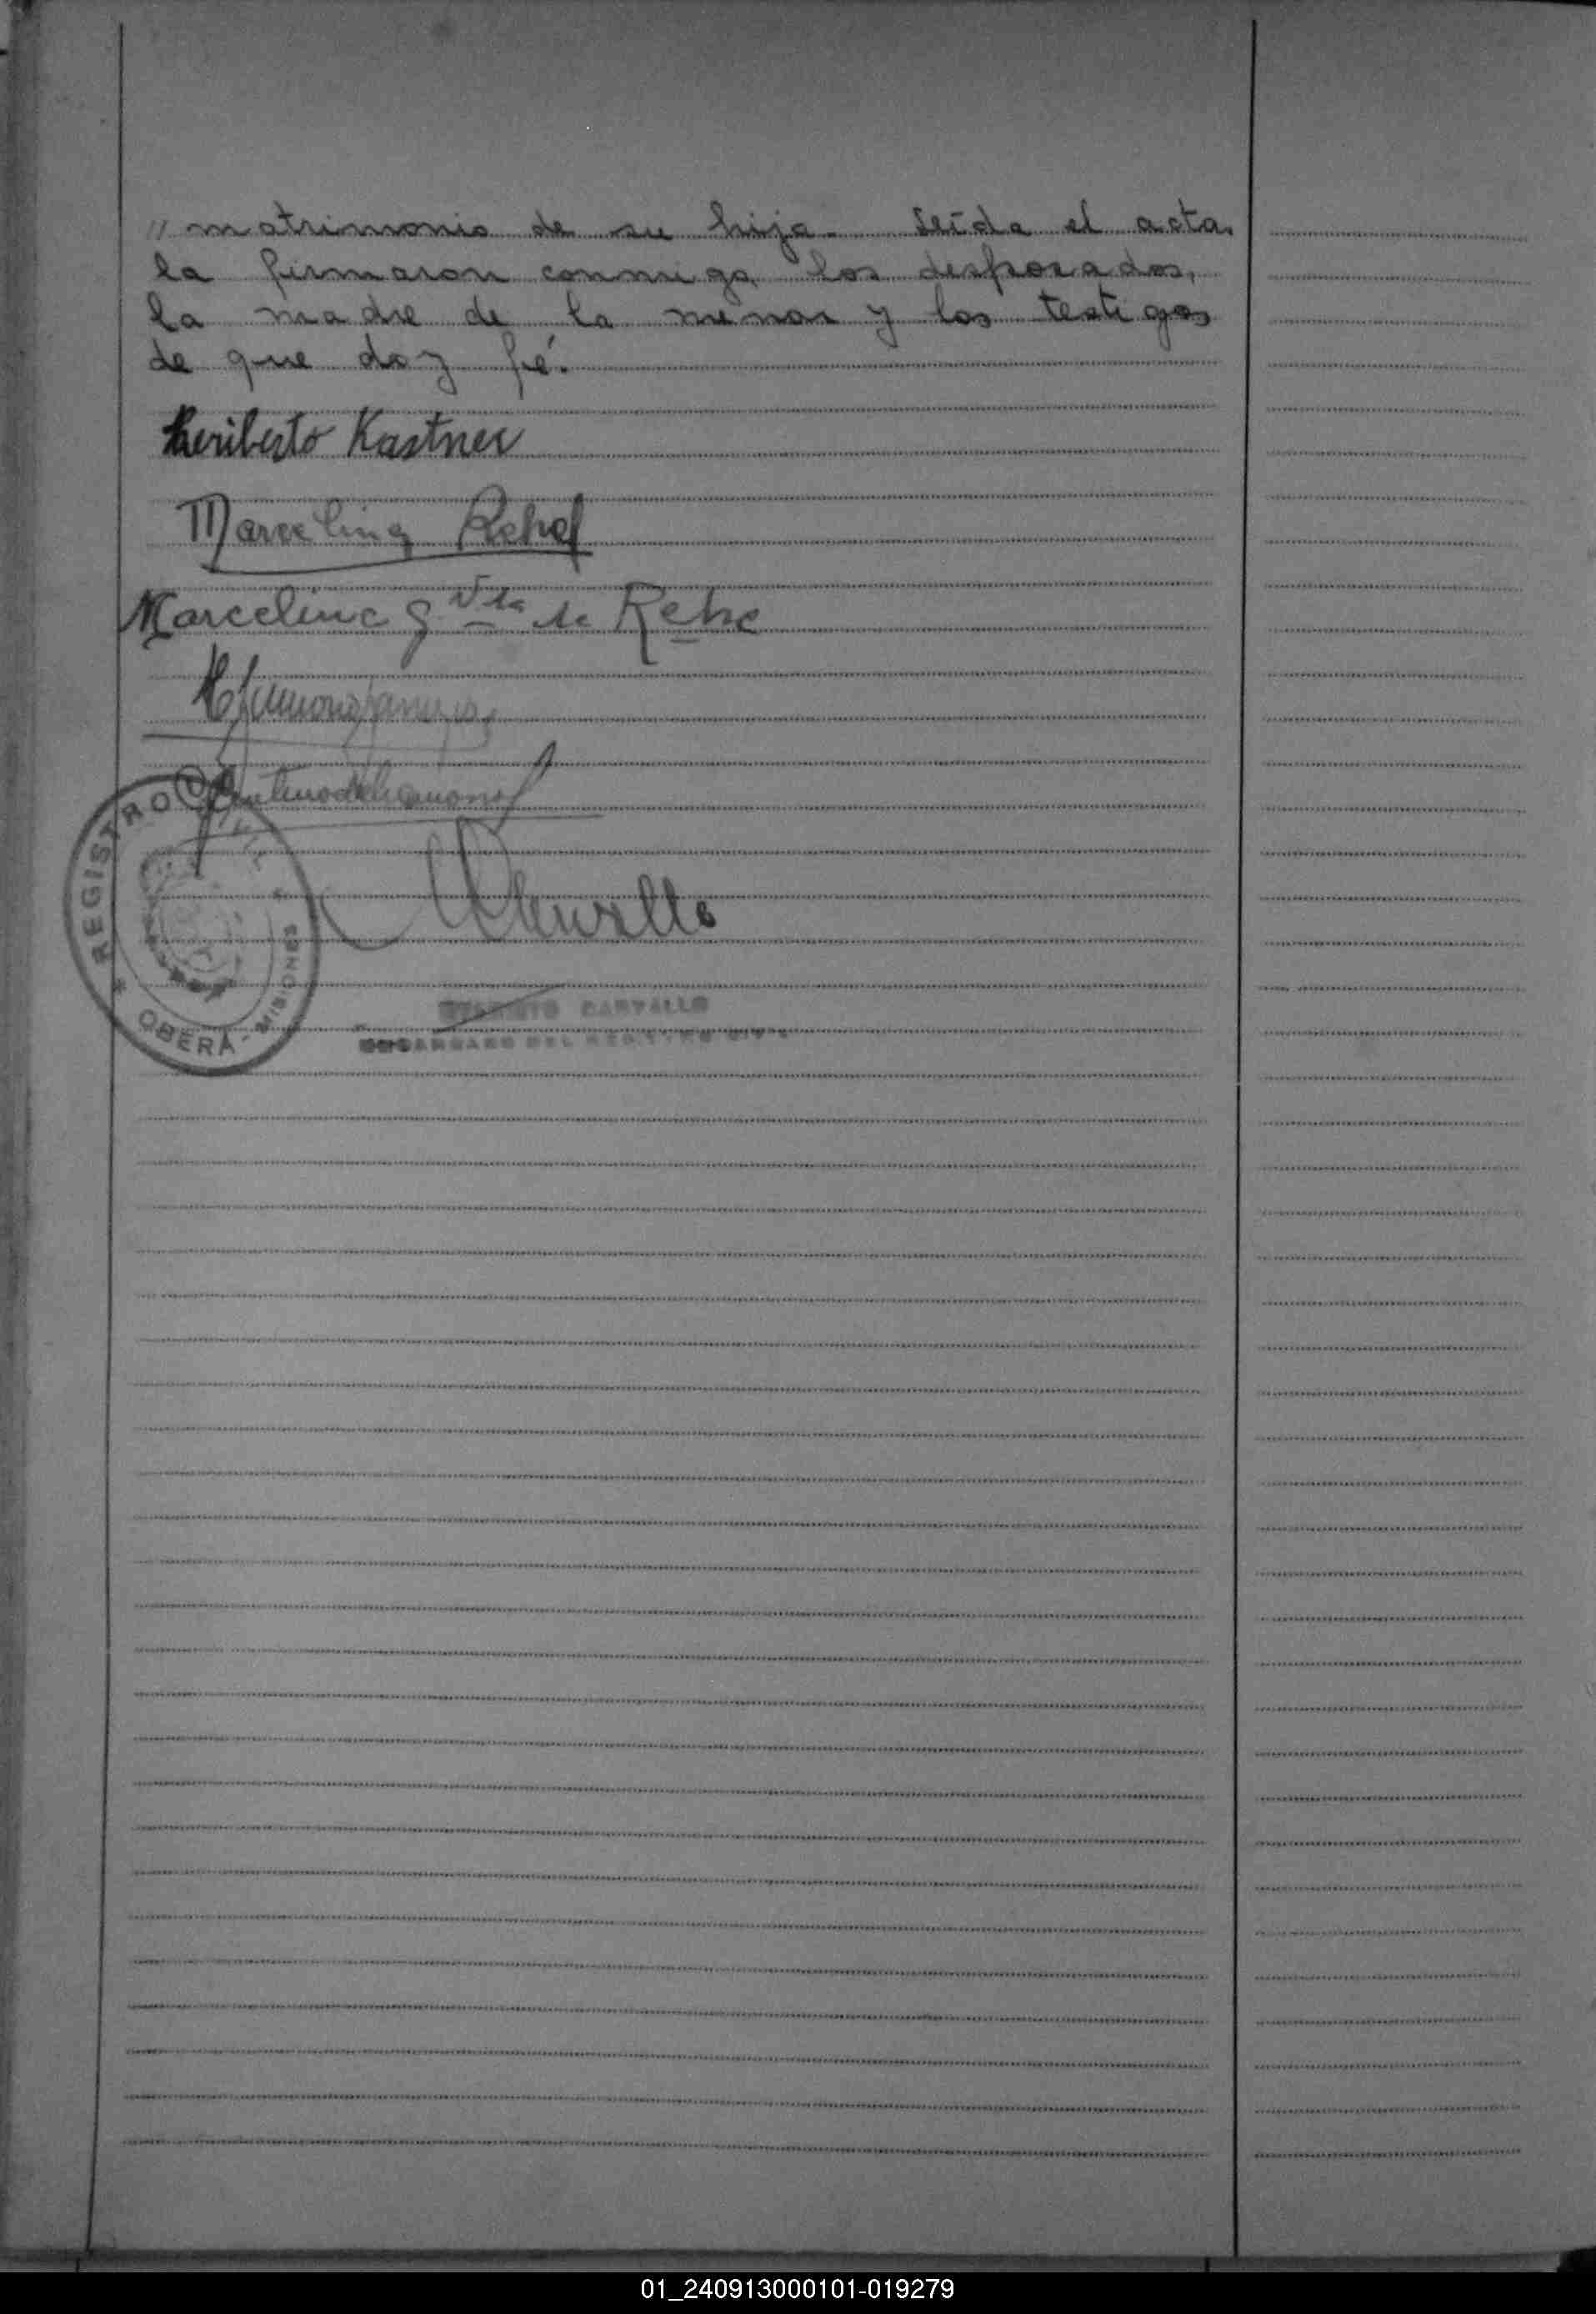 " matrimonio de su hija. Leída el acta,
la firmaron conmigo los desposados,
la madre de la menor y los testigos
de que doy fé.
Heriberto Kastner
Marcelina Rehe
Marcelina G. Vda de Rehe
REGISTRO
OBERA - MISIONES
CARVALLO
ENCARGADO DEL REGISTRO CIVIL
01_240913000101-019279